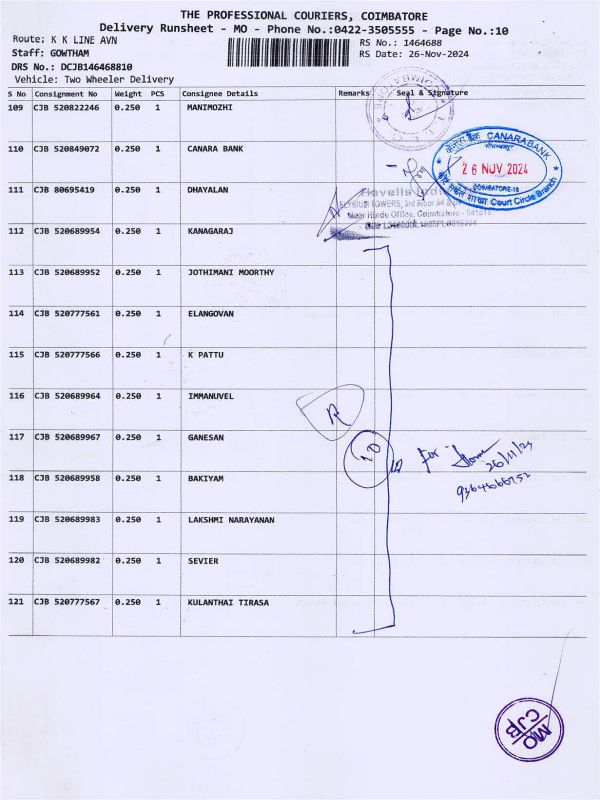 THE PROFESSIONAL COURIERS, COIMBATORE
Delivery Runsheet - MO - Phone No.:0422-3505555 - Page No.:10
Route: K K LINE AVN
RS No.: 1464688
Staff: GOWTHAM
RS Date: 26-Nov-2024
DRS No.: DCJB146468810
Vehicle: Two Wheeler Delivery
S No Consignment No Weight PCS Consignee Details Remarks Seal & Signature
109 CJB 520822246 0.250 1 MANIMOZHI
110 CJB 520849072 0.250 1 CANARA BANK
CANARA BANK
26 NOV 2024
COIMBATORE-18
Court Circle Branch
111 CJB 80695419 0.250 1 DHAYALAN
Havells India
ELYSIUM TOWERS, 3rd Floor
Near Hindu Office, Coimbatore - 641018
112 CJB 520689954 0.250 1 KANAGARAJ
113 CJB 520689952 0.250 1 JOTHIMANI MOORTHY
114 CJB 520777561 0.250 1 ELANGOVAN
115 CJB 520777566 0.250 1 K PATTU
116 CJB 520689964 0.250 1 IMMANUVEL
117 CJB 520689967 0.250 1 GANESAN
10
for
26/11/24
118 CJB 520689958 0.250 1 BAKIYAM
119 CJB 520689983 0.250 1 LAKSHMI NARAYANAN
120 CJB 520689982 0.250 1 SEVIER
121 CJB 520777567 0.250 1 KULANTHAI TIRASA
MO
CJB